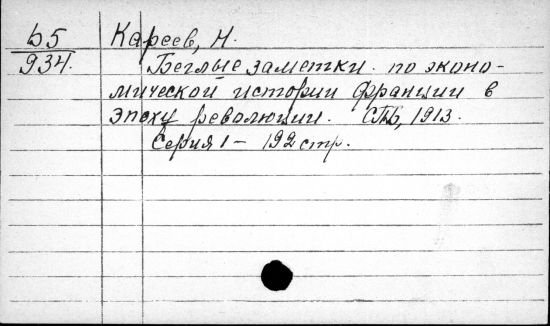 Ь5 Кареев, Н.
934. Беглые заметки по эконо-
мической истории Франции в
эпоху революции. СПБ, 1913.
Серия 1 – 192 стр.